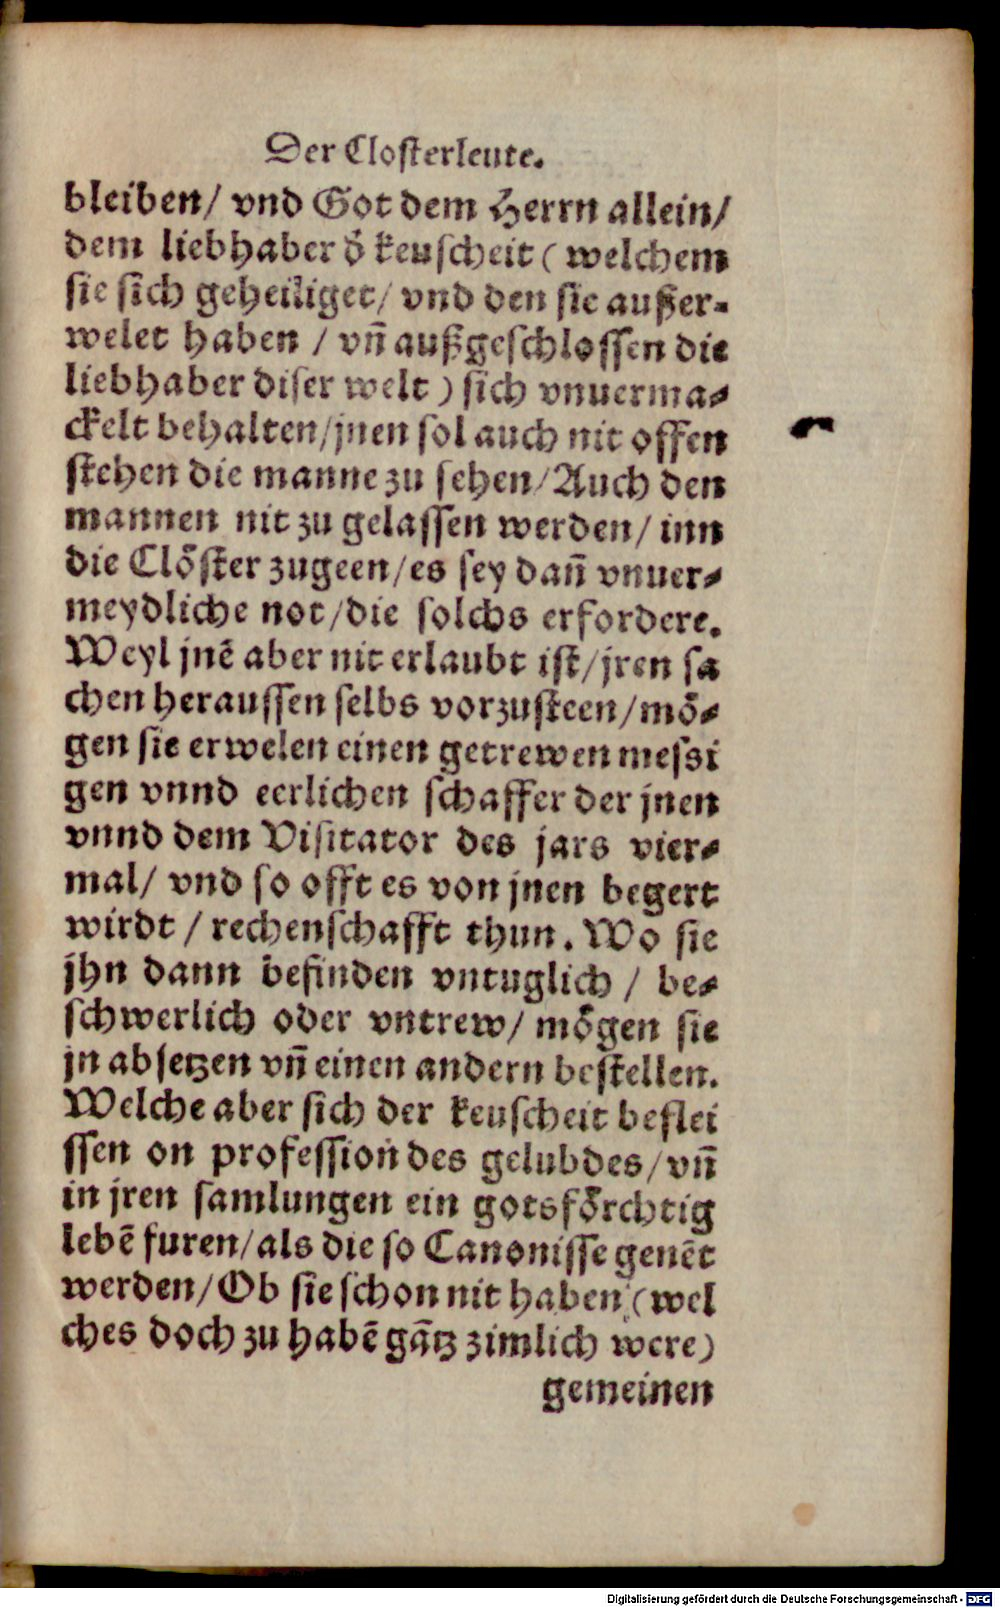 Der Closterleute.
bleiben/ vnd Got dem Herrn allein/
dem liebhaber d̕ keuscheit ( welchem
sie sich geheiliget/ vnd den sie außer-
welet haben / vñ außgeschlossen die
liebhaber diser welt ) sich vnuerma-
ckelt behalten/jnen sol auch nit offen
stehen die manne zu sehen/Auch den
mannen nit zu gelassen werden/ inn
die Clöster zugeen/es sey dañ vnuer-
meydliche not/die solchs erfordere.
Weyl jnẽ aber nit erlaubt ist/jren sa
chen heraussen selbs vorzusteen/mö-
gen sie erwelen einen getrewen messi
gen vnnd eerlichen schaffer der jnen
vnnd dem Visitator des jars vier-
mal/ vnd so offt es von jnen begert
wirdt / rechenschafft thun. Wo sie
jhn dann befinden vntuglich / be-
schwerlich oder vntrew/ mögen sie
jn absetzen vñ einen andern bestellen.
Welche aber sich der keuscheit beflei
ssen on profession des gelubdes/vñ
in jren samlungen ein gotsförchtig
lebẽ furen/als die so Canonisse genẽt
werden/Ob sie schon nit haben (wel
ches doch zu habẽ gãtz zimlich were)
gemeinen
Digitalisierung gefördert durch die Deutsche Forschungsgemeinschaft - DFG